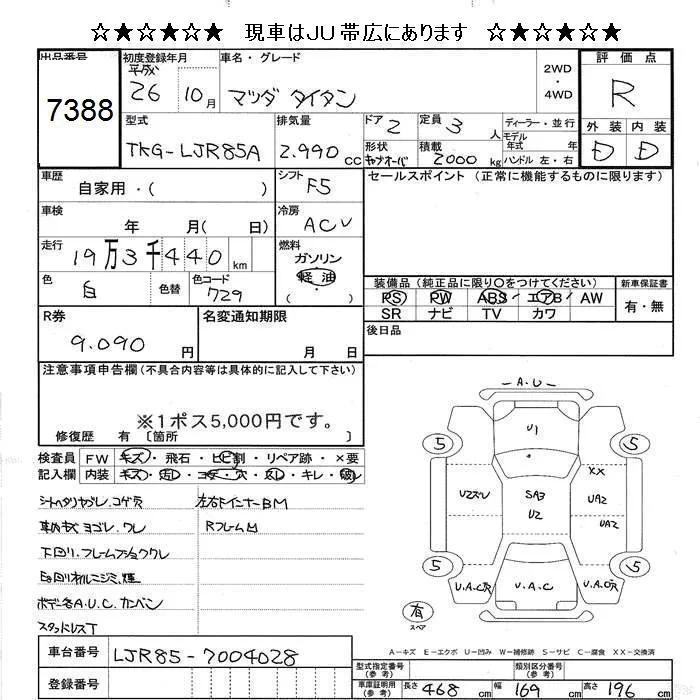 ☆★☆★☆★☆ 現車はJU帯広にあります ☆★☆★☆★☆
出品番号 初度登録年月 車名・グレード 2WD・4WD 評価点
7388 平成 26 10月 マツダ タイタン R
型式 排気量 ドア 2 定員 3人 ディーラー・並行 外装 内装
TKG-LJR85A 2.990cc 形状 積載 2000kg モデル年式 年 D D
キャブオーバ ハンドル 左・右
車歴 シフト F5 セールスポイント (正常に機能するものに限ります)
自家用・( )
車検 冷房
年 月( 日) ACV
走行 燃料
19万3千440km ガソリン
色 白 色替 色コード 729 軽油 ( )
装備品(純正品に限り○をつけてください) 新車保証書
PS PW ABS エアB AW 有・無
SR ナビ TV カワ
R券 名変通知期限 後日品
9.090円 月 日
注意事項申告欄(不具合内容等は具体的に記入して下さい)
※1ポス5,000円です。
修復歴 有 〔箇所 〕
検査員 FW キズ・飛石・ヒビ割・リペア跡・×要
記入欄 内装 キズ・汚レ・コゲ・穴・スレ・キレ・破レ
シートヘタリヤブレ.コゲ穴 左右ドインナーBM
車内キズ ヨゴレ.ワレ RフレームM
下回リ.フレームフショククサレ
ボデー各A.U.C.カンバン
スタッドレスT
-A.U-
5 U1 5
XX
SA3 UA2
U2 UA2
5 5
U.A.C
有
スペア
A-キズ E-エクボ U-凹み W-補修跡 S-サビ C-腐食 XX-交換済
車台番号 LJR85-7004028
登録番号
型式指定番号(参考) 類別区分番号(参考)
車庫証明用(参考) 長さ 468cm 幅 169cm 高さ 196cm